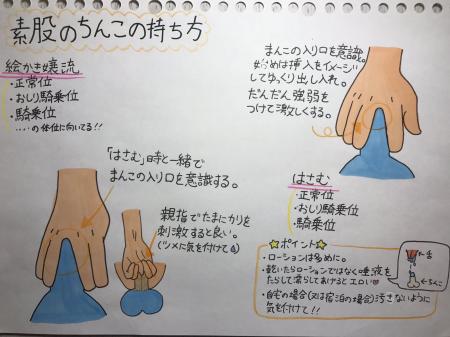 素股のちんこの持ち方
絵かき嬢流
・正常位
・おしり騎乗位
・騎乗位
‥‥の体位に向いてる!!
まんこの入り口を意識。
始めは挿入をイメージ
してゆっくり出し入れ。
だんだん強弱を
つけて激しくする。
「はさむ」時と一緒で
まんこの入り口を意識する。
親指でたまにカリを
刺激すると良い。
(ツメに気を付けて)
はさむ
・正常位
・おしり騎乗位
・騎乗位
ポイント
・ローションは多めに。
・乾いたらローションではなく唾液を
たらして濡らしてあげるとエロい
・自宅の場合(又は宿泊の場合)汚さないように
気を付けて!!
舌
ちんこ